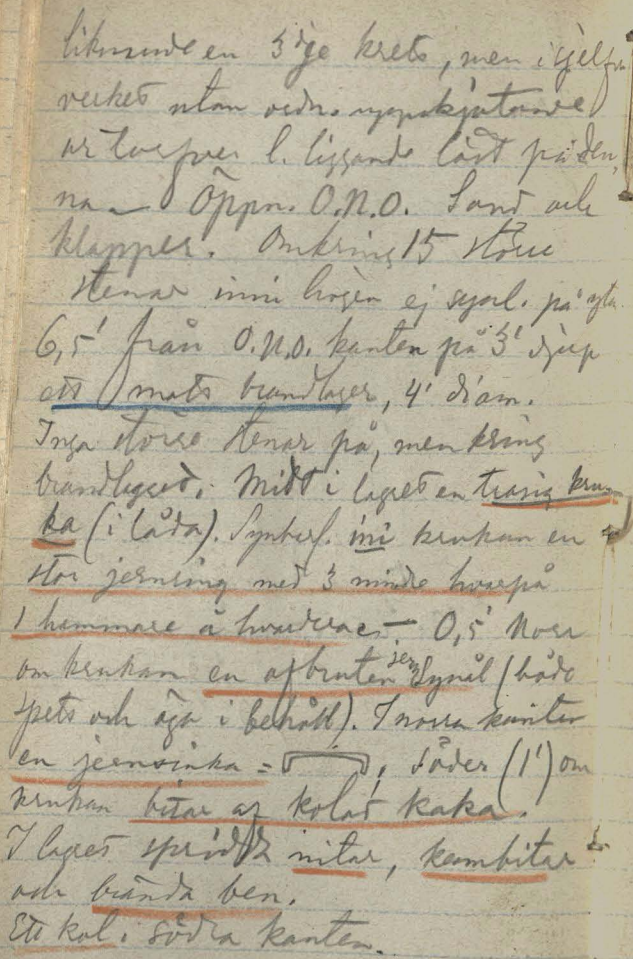 liknande en 3dje krets, men i sjelfva
verket utan
l. liggande löst på den
na — Öppn. O.N.O. Sand och
klapper. Omkring 15 större
stenar inni högen ej synl. på yta
6,5' från O.N.O. kanten på 3' djup
ett mats brandlager, 4' diam.
Inga större stenar på, men kring
brandlagret. Midt i lagret en trasig kru-
ka (i låda). Synbarl. ini krukan en
stor jernring med 3 mindre hvarpå
1 hammare å hvardera — 0,5' Norr
om krukan en afbruten jern synål (både
spets och öga i behåll). I norra kanten
en jernsinka = , söder (1') om
krukan bitar af kolad kaka.
I lagret spridda nitar, kambitar
och brända ben.
Ett kol i södra kanten.